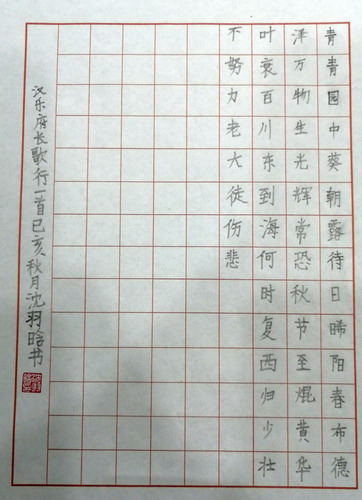 青青园中葵朝露待日晞阳春布德
泽万物生光辉常恐秋节至焜黄华
叶衰百川东到海何时复西归少壮
不努力老大徒伤悲
汉乐府长歌行一首己亥秋月沈羽晗书